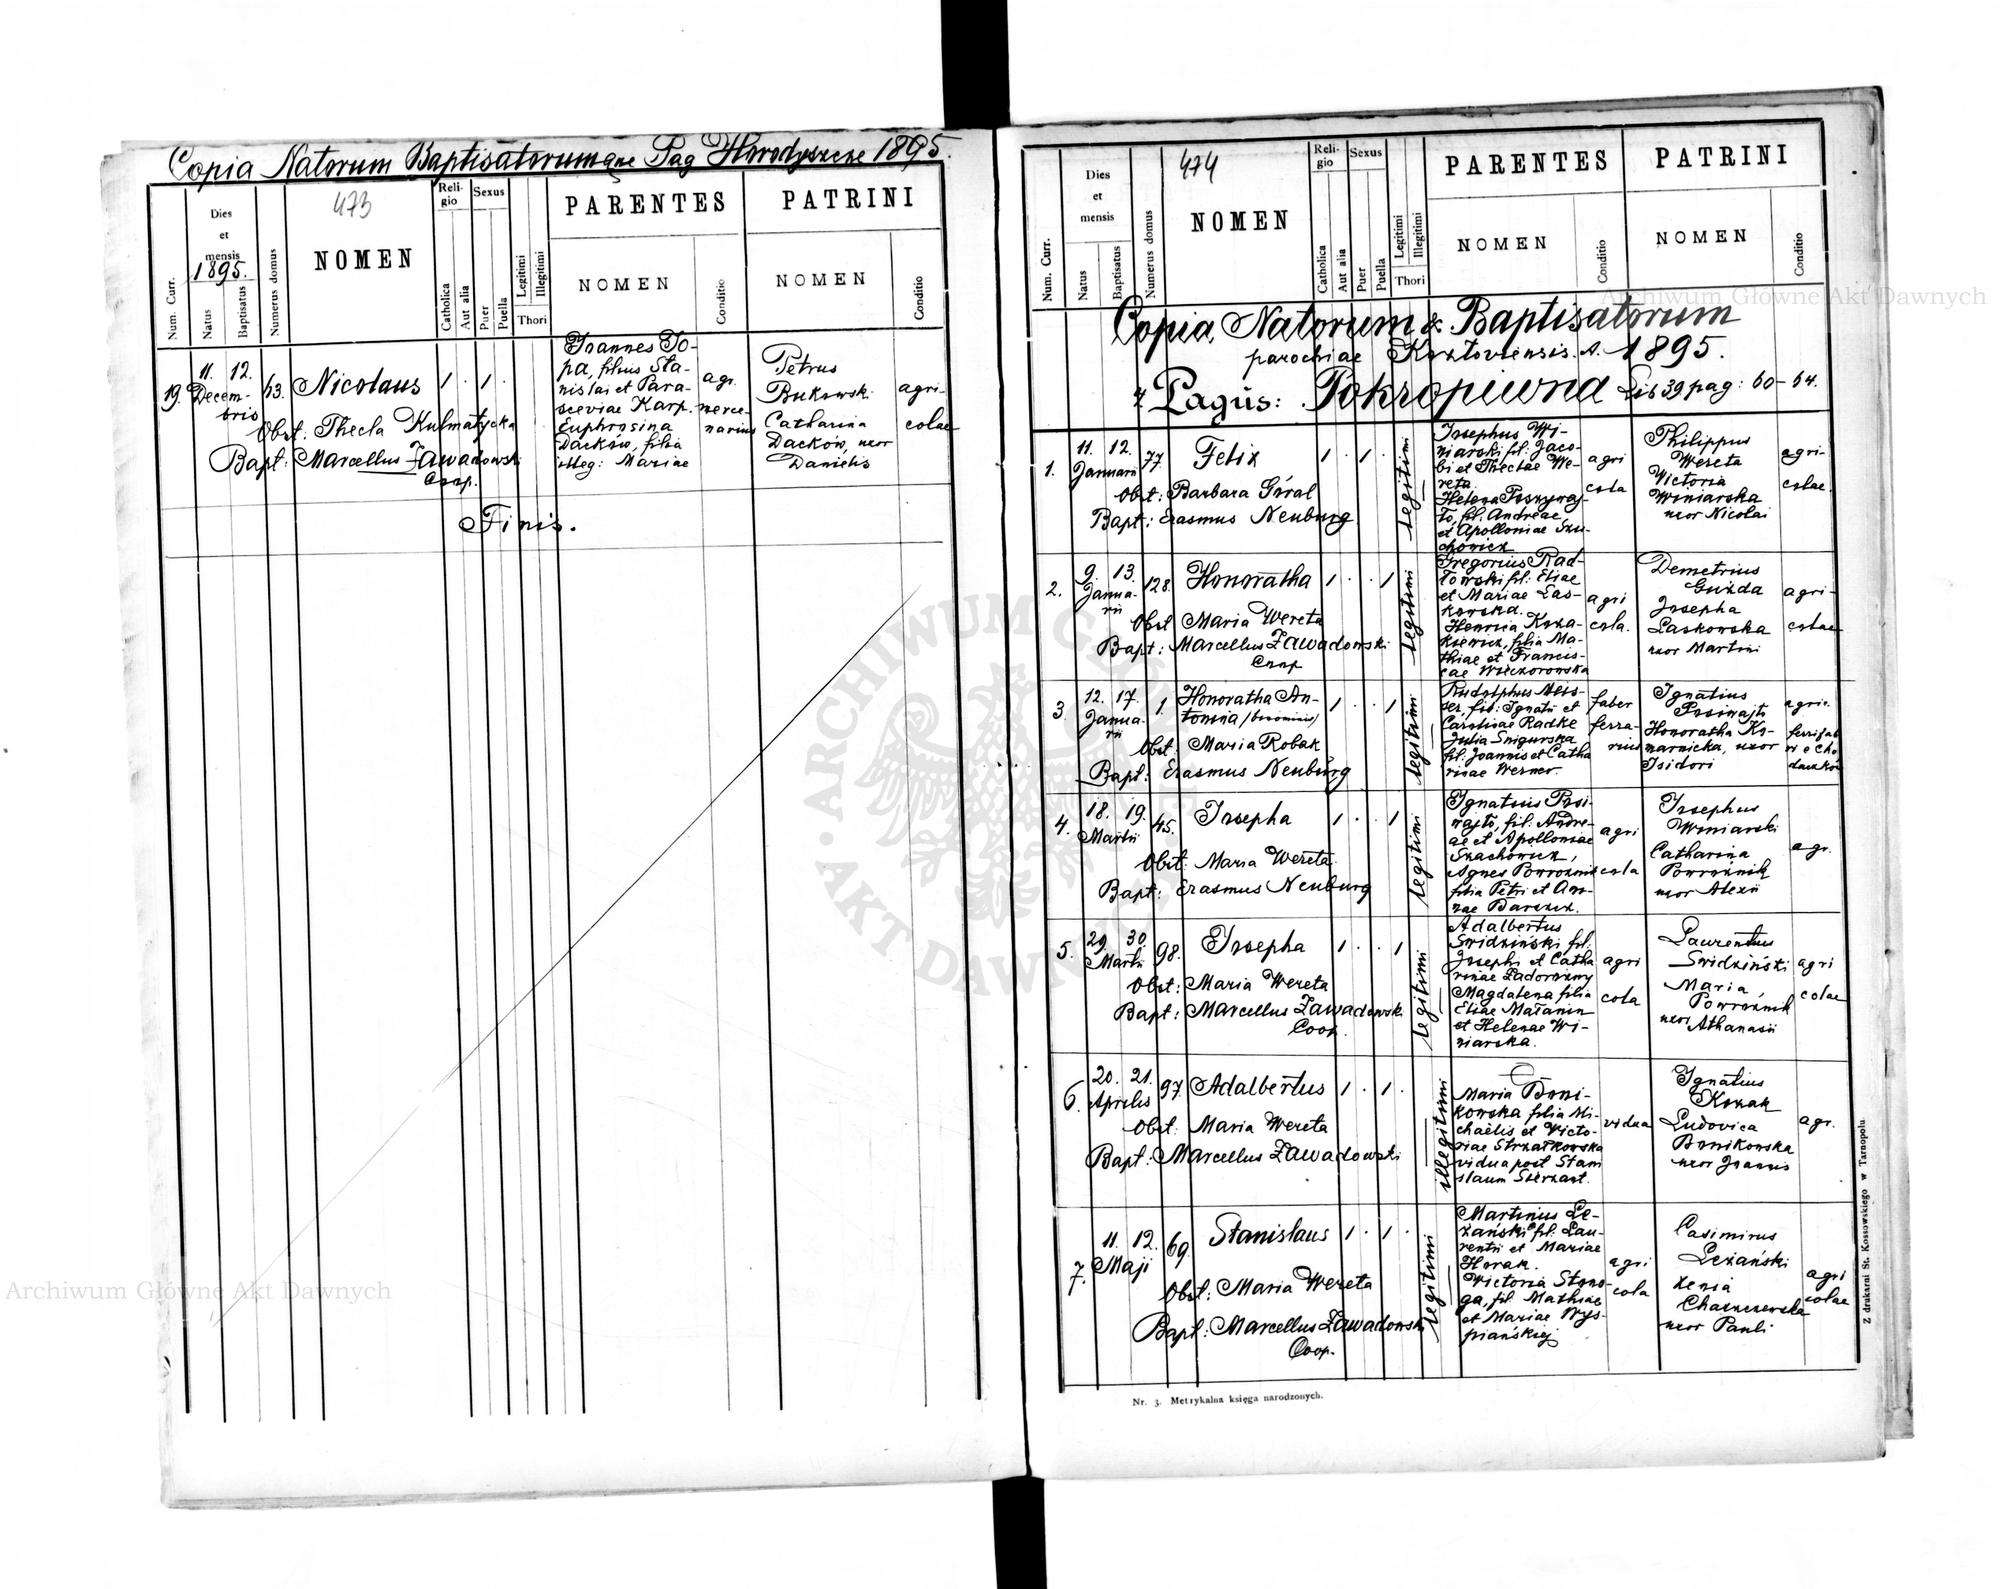 Copia Natorum Baptisatorumque Pag Horodyszcze 1895.
473
Num. Curr.
Dies et mensis
1895.
Natus
Baptisatus
Numerus domus
NOMEN
Religio
Catholica
Aut alia
Sexus
Puer
Puella
Legitimi
Illegitimi
Thori
PARENTES
NOMEN
Conditio
PATRINI
NOMEN
Conditio
19.
11. 12.
Decem-
bris
63.
Nicolaus
1 . 1 .
Obst: Thecla Kulmatycka
Bapt: Marcellus Zawadowski
Coop.
Joannes To-
pa, filius Sta-
nislai et Para-
sceviae Karp.
Euphrosina
Dacków, filia
illeg: Mariae
agr.
merce-
narius
Petrus
Bukowski
Catharina
Dacków, uxor
Danielis
agri-
colae
Finis.
474
Num. Curr.
Dies et mensis
Natus
Baptisatus
Numerus domus
NOMEN
Religio
Catholica
Aut alia
Sexus
Puer
Puella
Legitimi
Illegitimi
Thori
PARENTES
NOMEN
Conditio
PATRINI
NOMEN
Conditio
Copia Natorum & Baptisatorum
parochiae Kozłoviensis A. 1895.
Pagus: Pokropiwna Lib 39 pag: 60-64.
1.
11. 12.
Januarii
77.
Felix
1 . 1 .
Obst: Barbara Góral
Bapt: Erasmus Neuburg
legitimi
Josephus Wi-
niarski fil: Jaco-
bi et Theclae We-
reta
Helena Poszywaj-
ło, fil: Andreae
et Apolloniae Szu-
chowicz
agri
cola
Philippus
Wereta
Victoria
Winiarska
uxor Nicolai
agri-
colae.
2.
9. 13.
Janua-
rii
128.
Honoratha
1 . . 1
Obst Maria Wereta
Bapt: Marcellus Zawadowski
Coop
legitimi
Gregorius Rad-
łowski fil: Eliae
et Mariae Las-
kowska.
Henrica Koza-
kiewicz, filia Ma-
thiae et Francis-
cae Wieczorowska
agri
cola.
Demetrius
Guzda
Josepha
Laskowska
uxor Martini
agri-
colae
3.
12. 17.
Janua-
rii
1.
Honoratha An-
tonina (binominis)
1 . . 1
Obst: Maria Robak
Bapt: Erasmus Neuburg
legitimi
Rudolphus Meis-
ser, fil: Ignatii et
Carolinae Radke
Julia Snigurska
fil: Joannis et Catha
rinae Werner.
faber
ferra-
rius
Ignatius
Honoratha Ko-
marnicka, uxor
Isidori
agric.
4.
18. 19.
Martii
45.
Josepha
1 . . 1
Obst: Maria Wereta
Bapt: Erasmus Neuburg
legitimi
fil: Andre-
ae et Apolloniae
Szachowicz,
Agnes Powroznik
filia Petri et An-
nae Barszcz.
agri
cola
Josephus
Winiarski
Catharina
Powroznik
uxor Alexii
agr.
5.
29. 30.
Martii
98.
Josepha
1 . . 1
Obst: Maria Wereta
Bapt: Marcellus Zawadowski
Coop.
legitimi
Adalbertus
Swidziński fil:
Josephi et Catha
rinae Zadorozny
Magdalena filia
Eliae Małanin
et Helenae Wi-
niarska.
agri
cola
Laurentius
Swidziński
Maria
Powroznik
uxor Athanasii
agri
colae
6.
20. 21.
Aprilis
97.
Adalbertus
1 . 1 .
Obst. Maria Wereta
Bapt: Marcellus Zawadowski
illegitimi
Maria Boni-
kowska filia Mi-
chaëlis et Victo-
riae Strzałkowska
vidua post Stani
slaum
vidua
Ignatius
Kozak
Ludovica
Bonikowska
uxor Joannis
agr.
7.
11. 12.
Maji
69.
Stanislaus
1 . 1 .
Obst: Maria Wereta
Bapt: Marcellus Zawadowski
Coop.
legitimi
Martinus Le-
żański fil: Lau-
rentii et Mariae
Horak.
Victoria Stono-
ga, fil. Mathiae
et Mariae Wys-
piańskiej
agri
cola
Casimirus
Leżański
Xenia
uxor Pauli
agri
colae
Nr. 3. Metrykalna księga narodzonych.
Z drukarni St. Kossowskiego w Tarnopolu.
Archiwum Główne Akt Dawnych
Archiwum Główne Akt Dawnych
ARCHIWUM GŁÓWNE AKT DAWNYCH